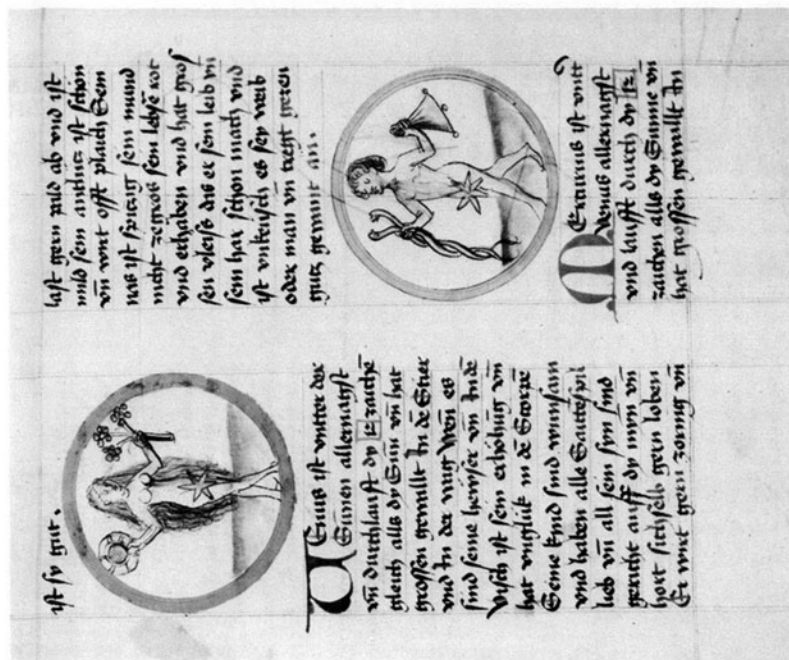 ist sy gut.
Venus ist vntter der
Sunnen allernagst
vn̄ durchlauft dy 12 zaichē
gleich allß dy Sun̄ vn̄ hat
grossen gewallt In dē Stier
vnd In der wag wen̄ es
sind seine hewser vn̄ In dē
visch ist sein erhöhūg vn̄
hat vnglük in dē Scorpē
Seine kind sind wunsam
vnd haben alle Sauttespil
lieb vn̄ all sein syn sind
gericht auff dy myn vn̄
hort sichselb gern loben
Er wirt gern zornig vn̄
last gern pald ab vnd ist
mild sein antlutz ist schön
vn̄ wirt offt plaich Sein
naß ist spitzig sein mund
nicht zegroß sein lebsē rot
vnd erhaben vnd hat groß
sen vleiß das er sein leib vn̄
sein har schon mach vnd
ist vnkeusch es sey weib
oder man vn̄ tregt geren
gutz gewant an.
Mercurius ist vntt
Venus allernagst
vnd laufft durch dy 12
zaichen allß dy Sunne vn̄
hat grossen gewallt In